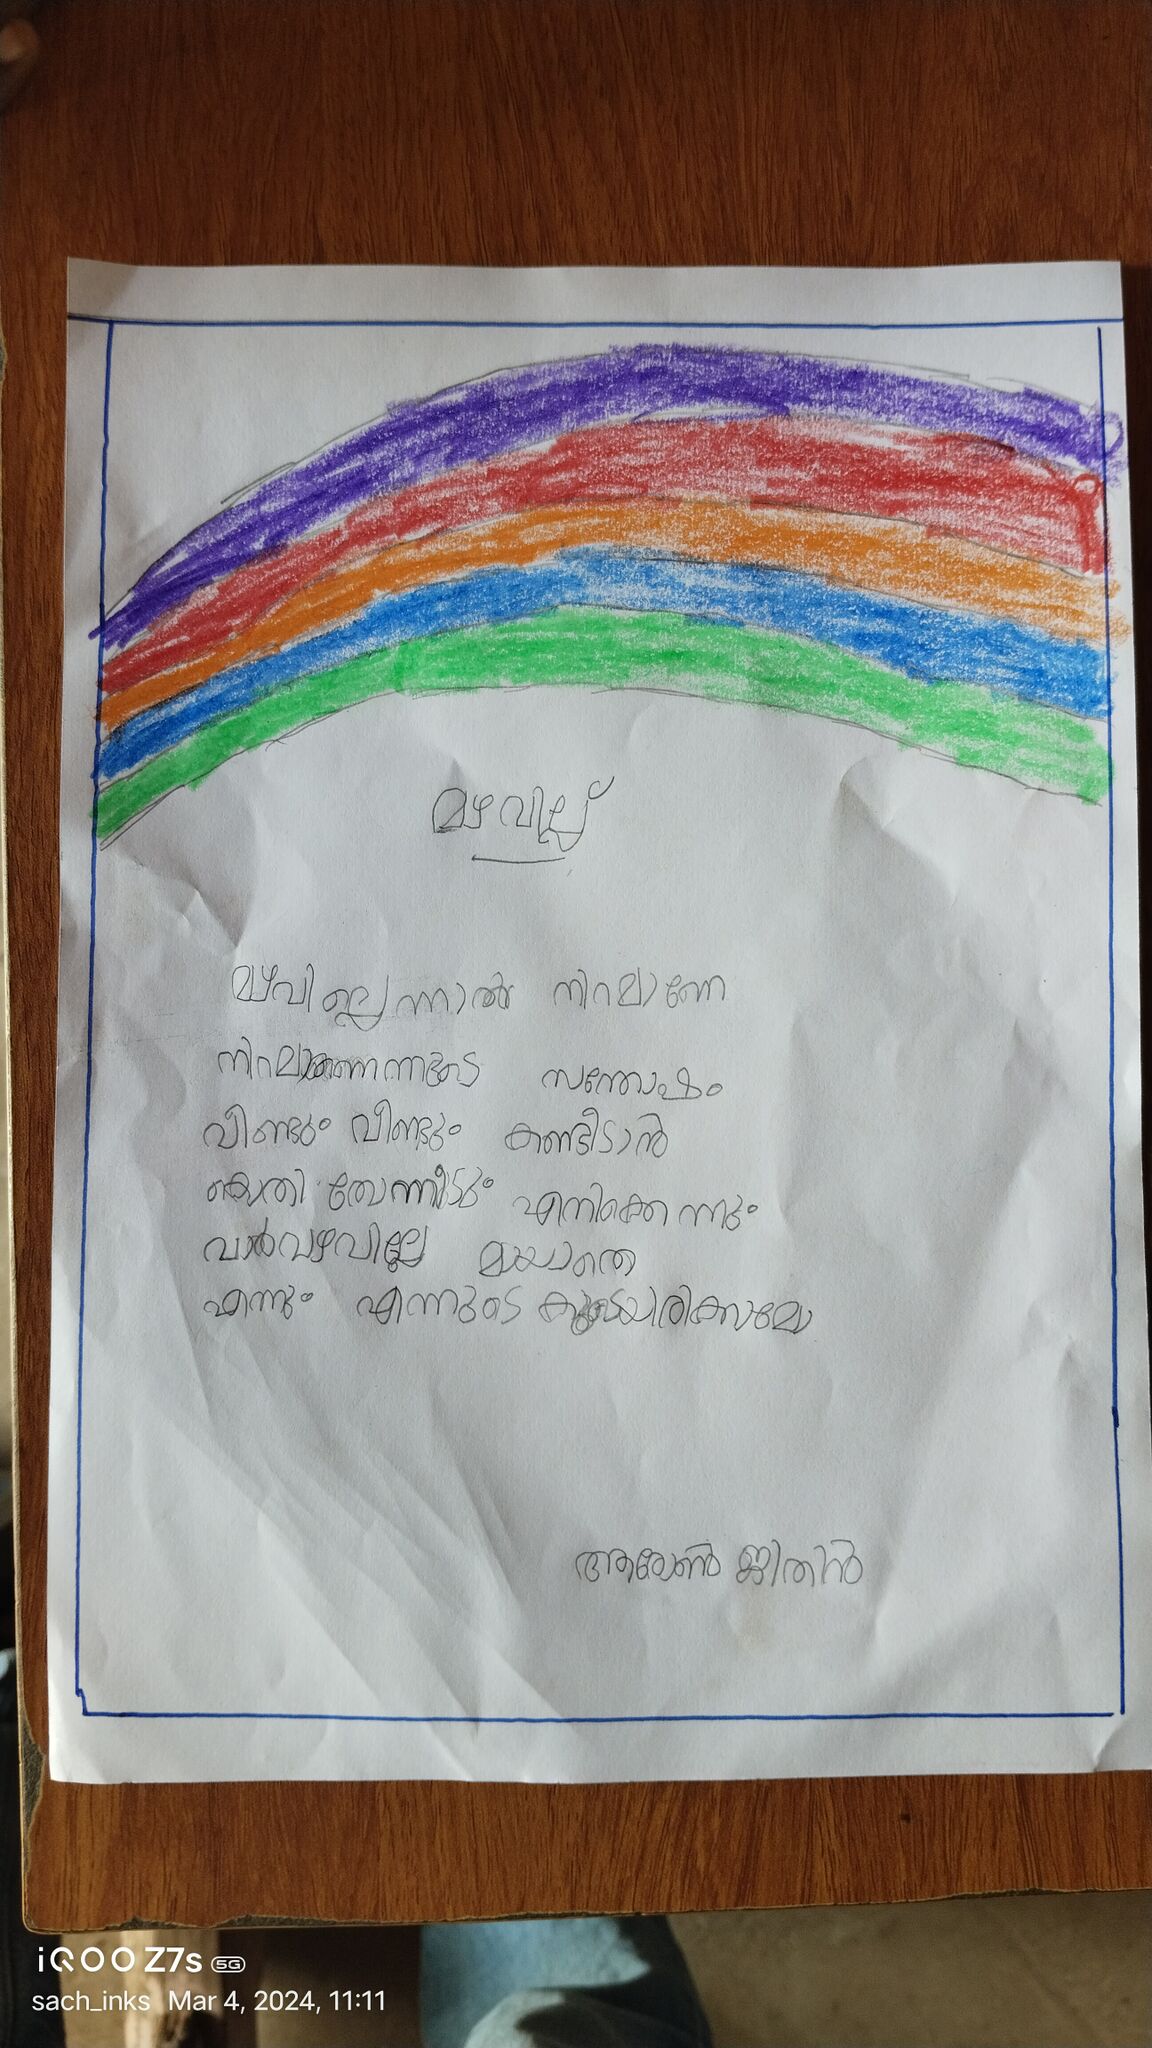 മഴവില്ല്
മഴവില്ലെന്നാൽ നിറമാണേ
നിറമാണെന്നുടെ സന്തോഷം
വീണ്ടും വീണ്ടും കണ്ടീടാൻ
കൊതി തോന്നീടും എനിക്കെന്നും
വാർമഴവില്ലേ മായാതെ
എന്നും എന്നുടെ കൂടെയിരിക്കാമോ
ആരോൺ ജിതിൻ
iQOO Z7s 5G
sach_inks Mar 4, 2024, 11:11